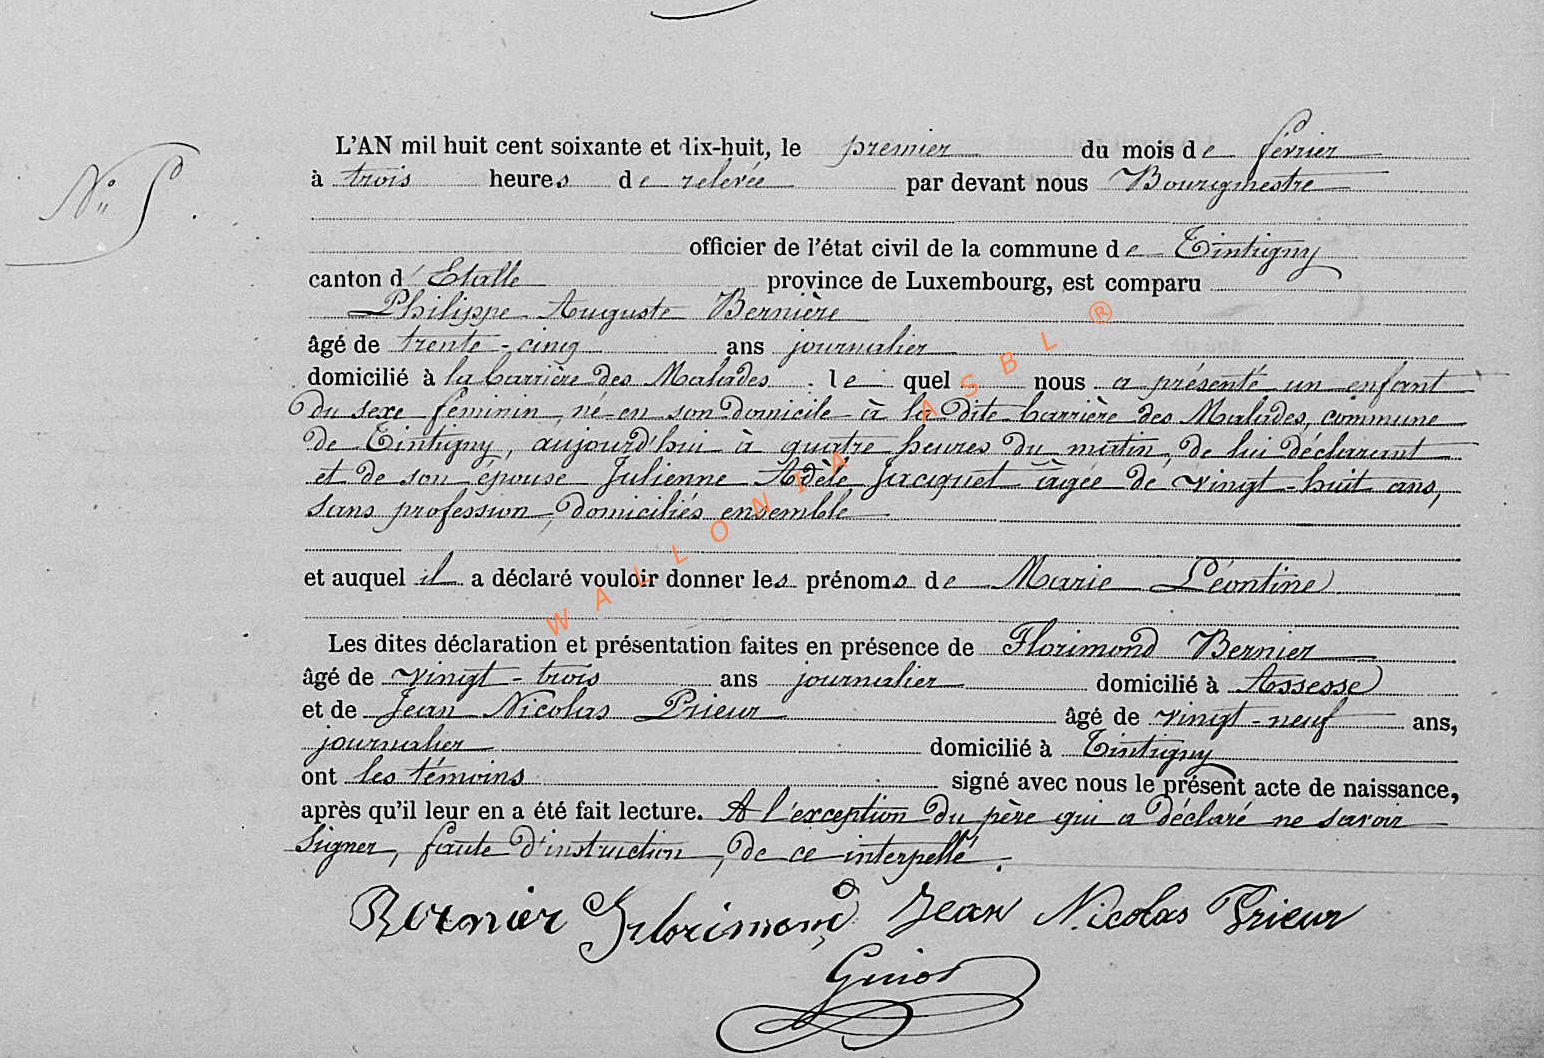 L'AN mil huit cent soixante et dix-huit, le premier du mois de février
N° 5.
à trois heures de relevée par devant nous Bourgmestre
officier de l'état civil de la commune de Tintigny
canton d'Etalle province de Luxembourg, est comparu
Philippe Auguste Bernière
âgé de trente-cinq ans journalier
domicilié à la barrière des Malades . le quel nous a présenté un enfant
du sexe féminin, né en son domicile à la dite barrière des Malades, commune
de Tintigny, aujourd'hui à quatre heures du matin, de lui déclarant
et de son épouse Julienne Adèle Jacquet âgée de vingt-huit ans,
sans profession, domiciliés ensemble
et auquel il a déclaré vouloir donner les prénoms de Marie Léontine
Les dites déclaration et présentation faites en présence de Florimond Bernier
âgé de vingt-trois ans journalier domicilié à Assesse
et de Jean Nicolas Prieur âgé de vingt-neuf ans,
journalier domicilié à Tintigny
ont les témoins signé avec nous le présent acte de naissance,
après qu'il leur en a été fait lecture. A l'exception du père qui a déclaré ne savoir
signer, faute d'instruction, de ce interpellé.
Bernier Florimond Jean Nicolas Prieur
Guiot
WALLONIA ASBL ®